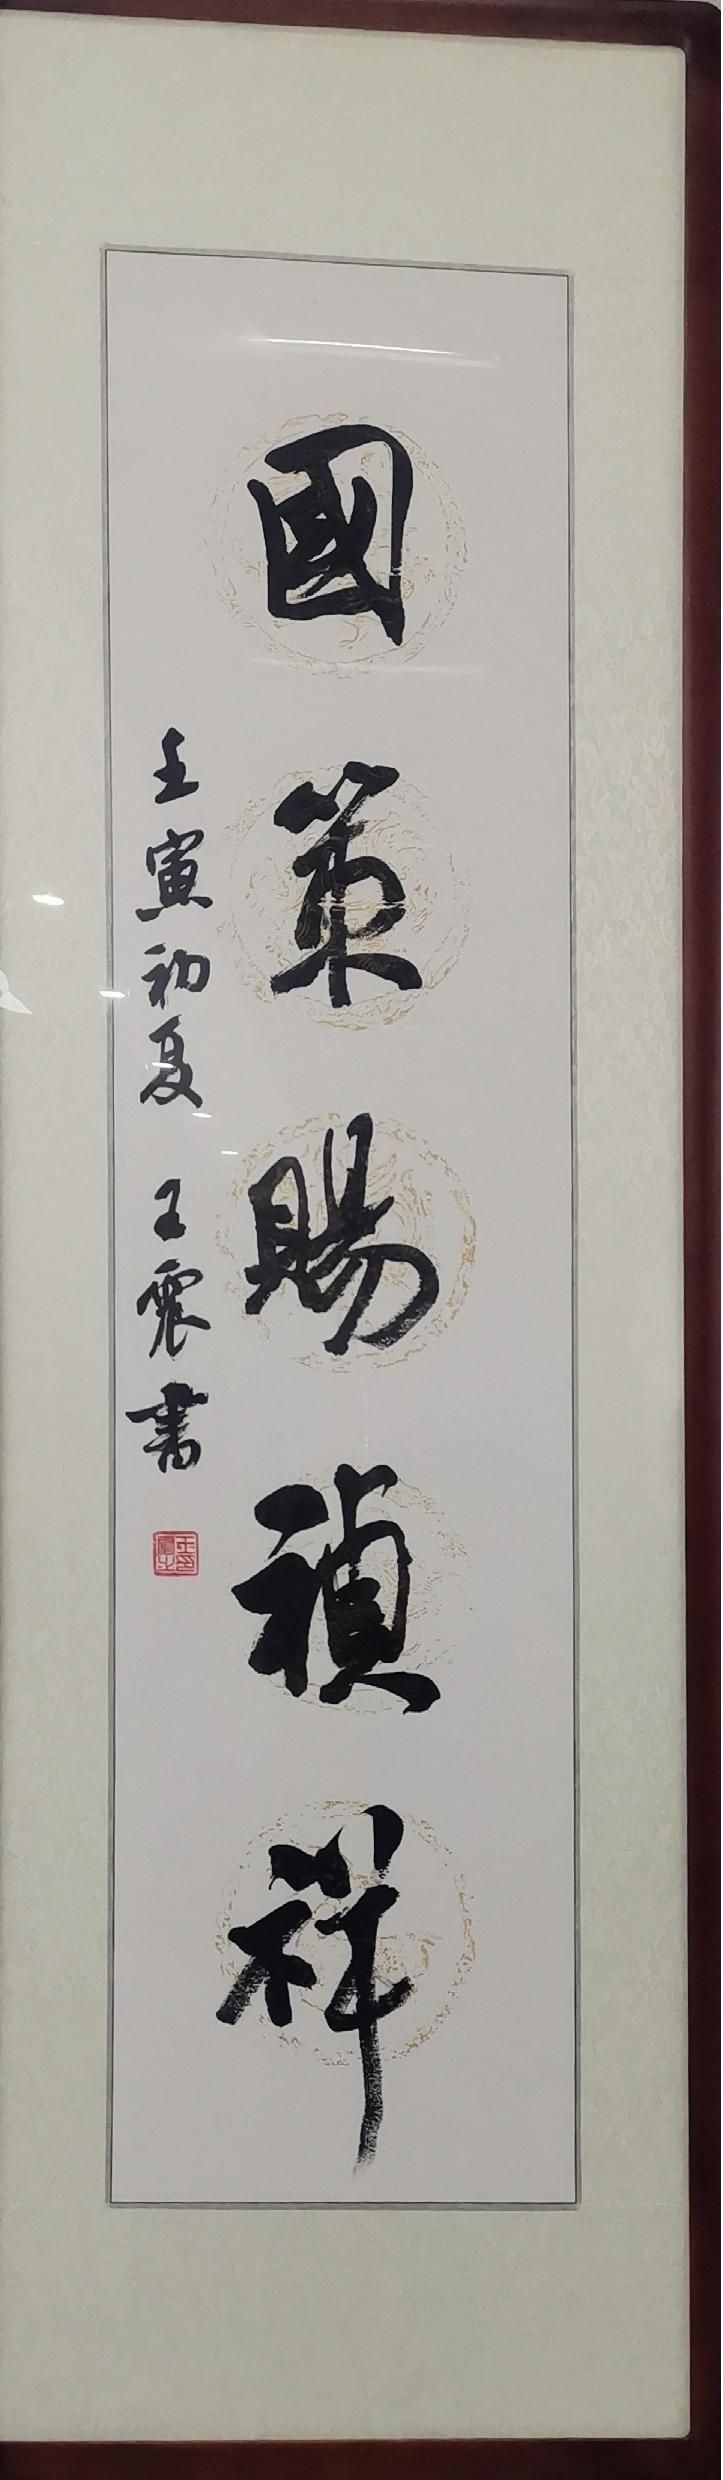 國策賜禎祥
壬寅初夏 王震书